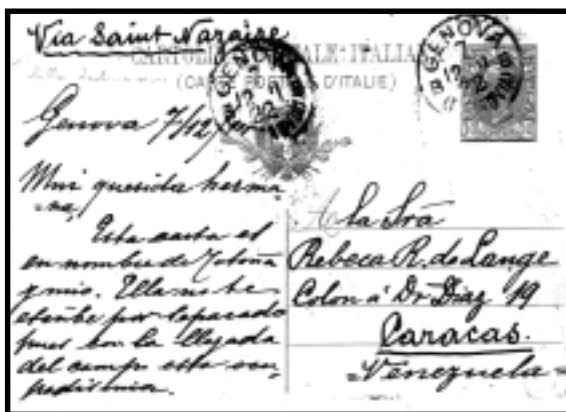 Via Saint Nazaire
CARTOLINA POSTALE ITALIANA
(CARTE POSTALE D'ITALIE)
GENOVA
GENOVA
Genova 7/12
Mui querida herma
na,
Esta carta es
en nombre de
y mio. Ella no te
escribe por
pues con la llegada
del campo esta ocu
padisima.
A la Srā
Rebeca R. de Lange
Colon á Dr Diaz 19
Caracas.
=Venezuela=